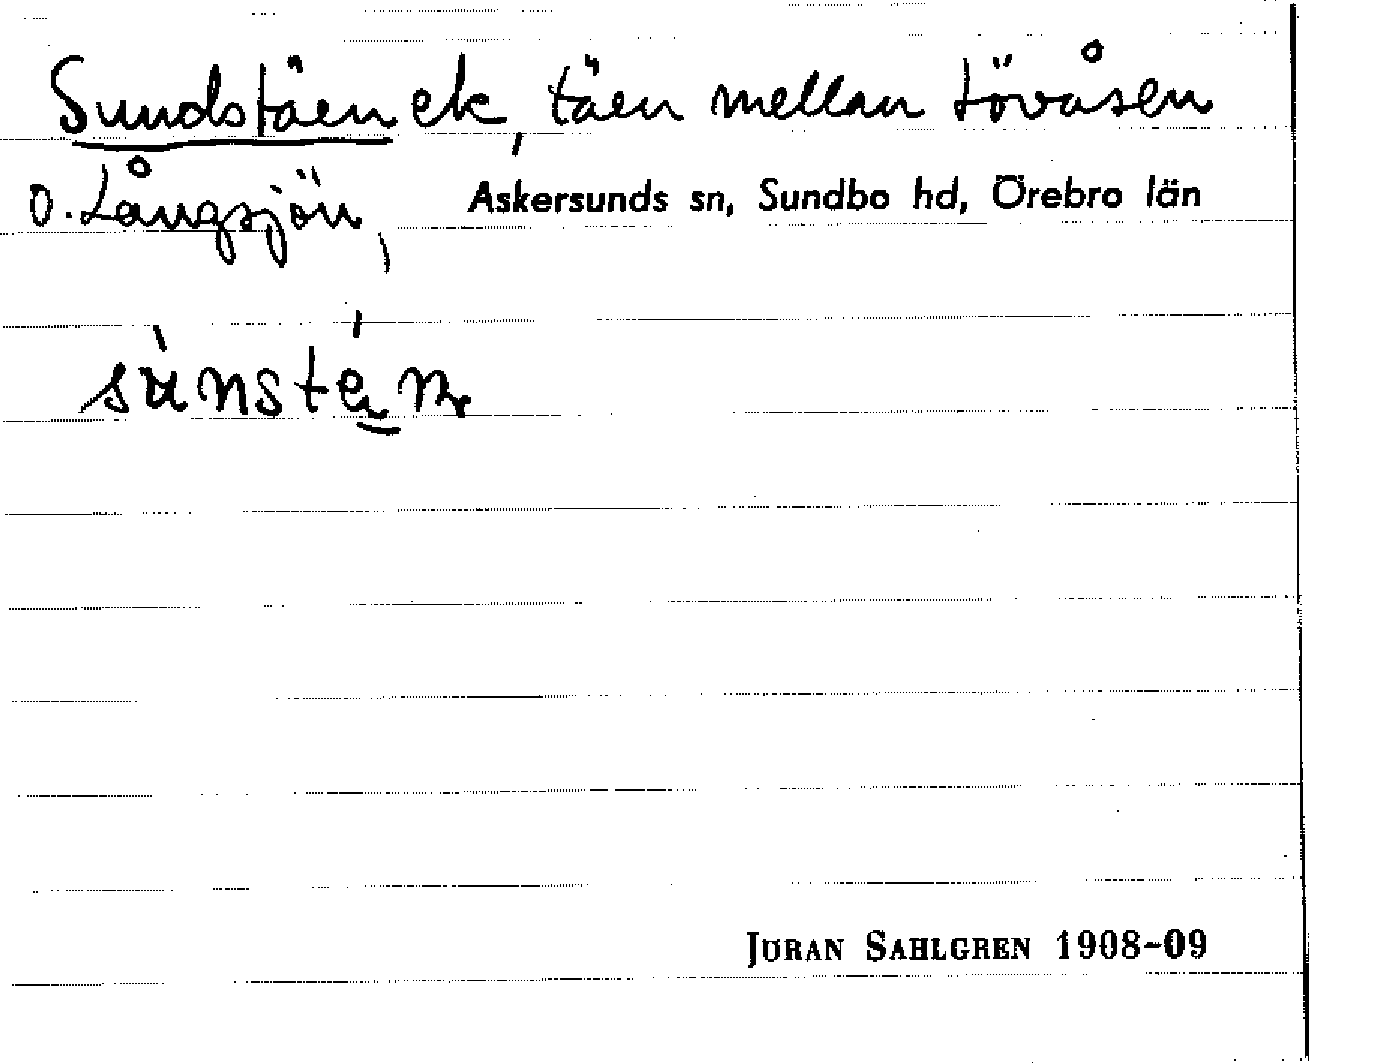 Sundstäen ek, täen mellan Lövåsen
o. Långsjön, Askersunds sn, Sundbo hd, Örebro län
JÖRAN SAHLGREN 1908-09